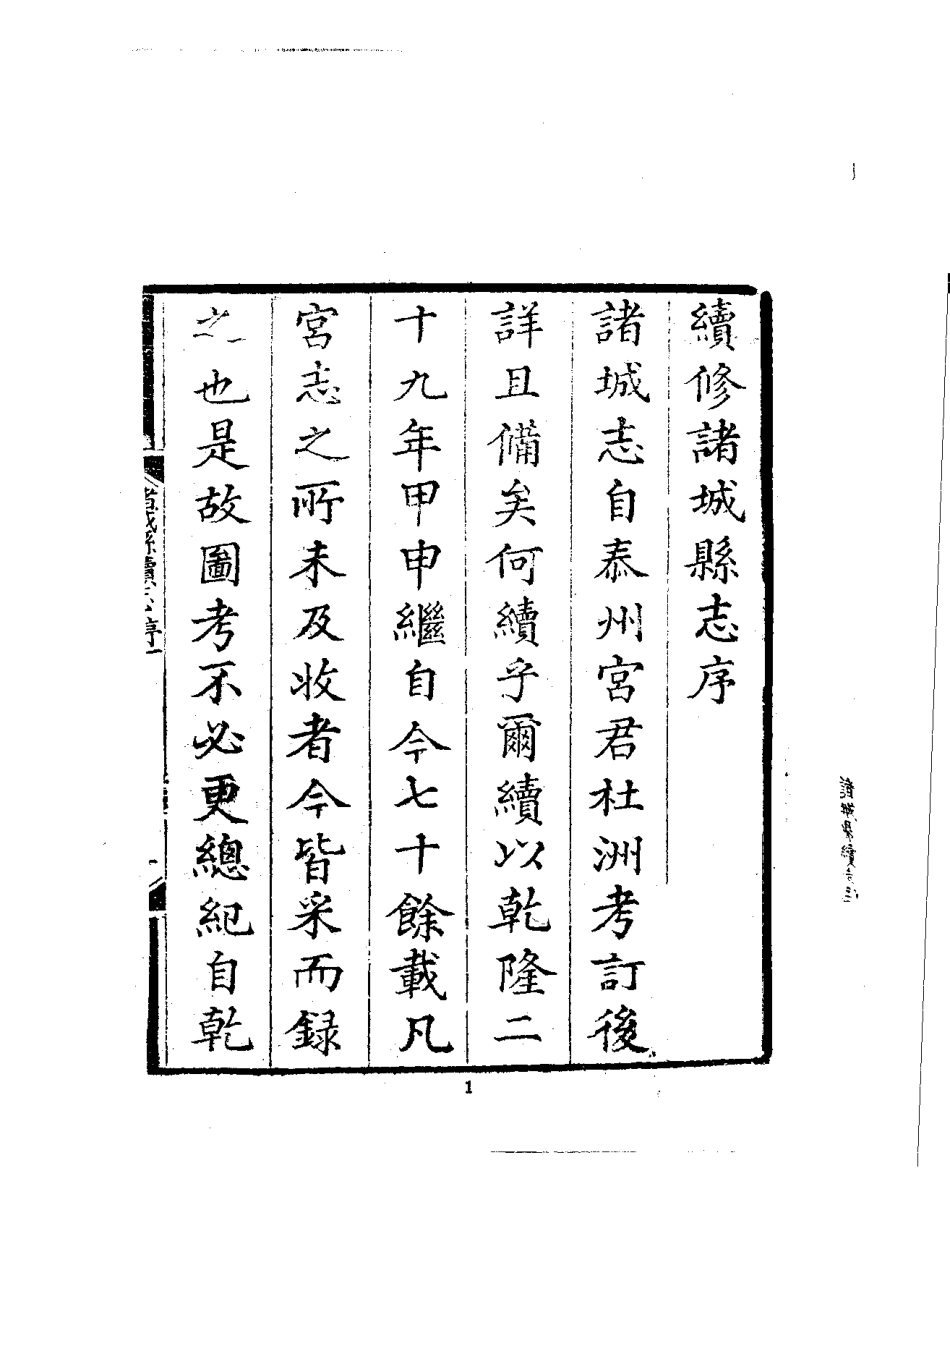 續修諸城縣志序
諸城志自泰州宮君杜洲考訂後
詳且備矣何續乎爾續以乾隆二
十九年甲申繼自今七十餘載凡
宮志之所未及收者今皆采而録
之也是故圖考不必更總紀自乾
諸城縣續志
序一
1